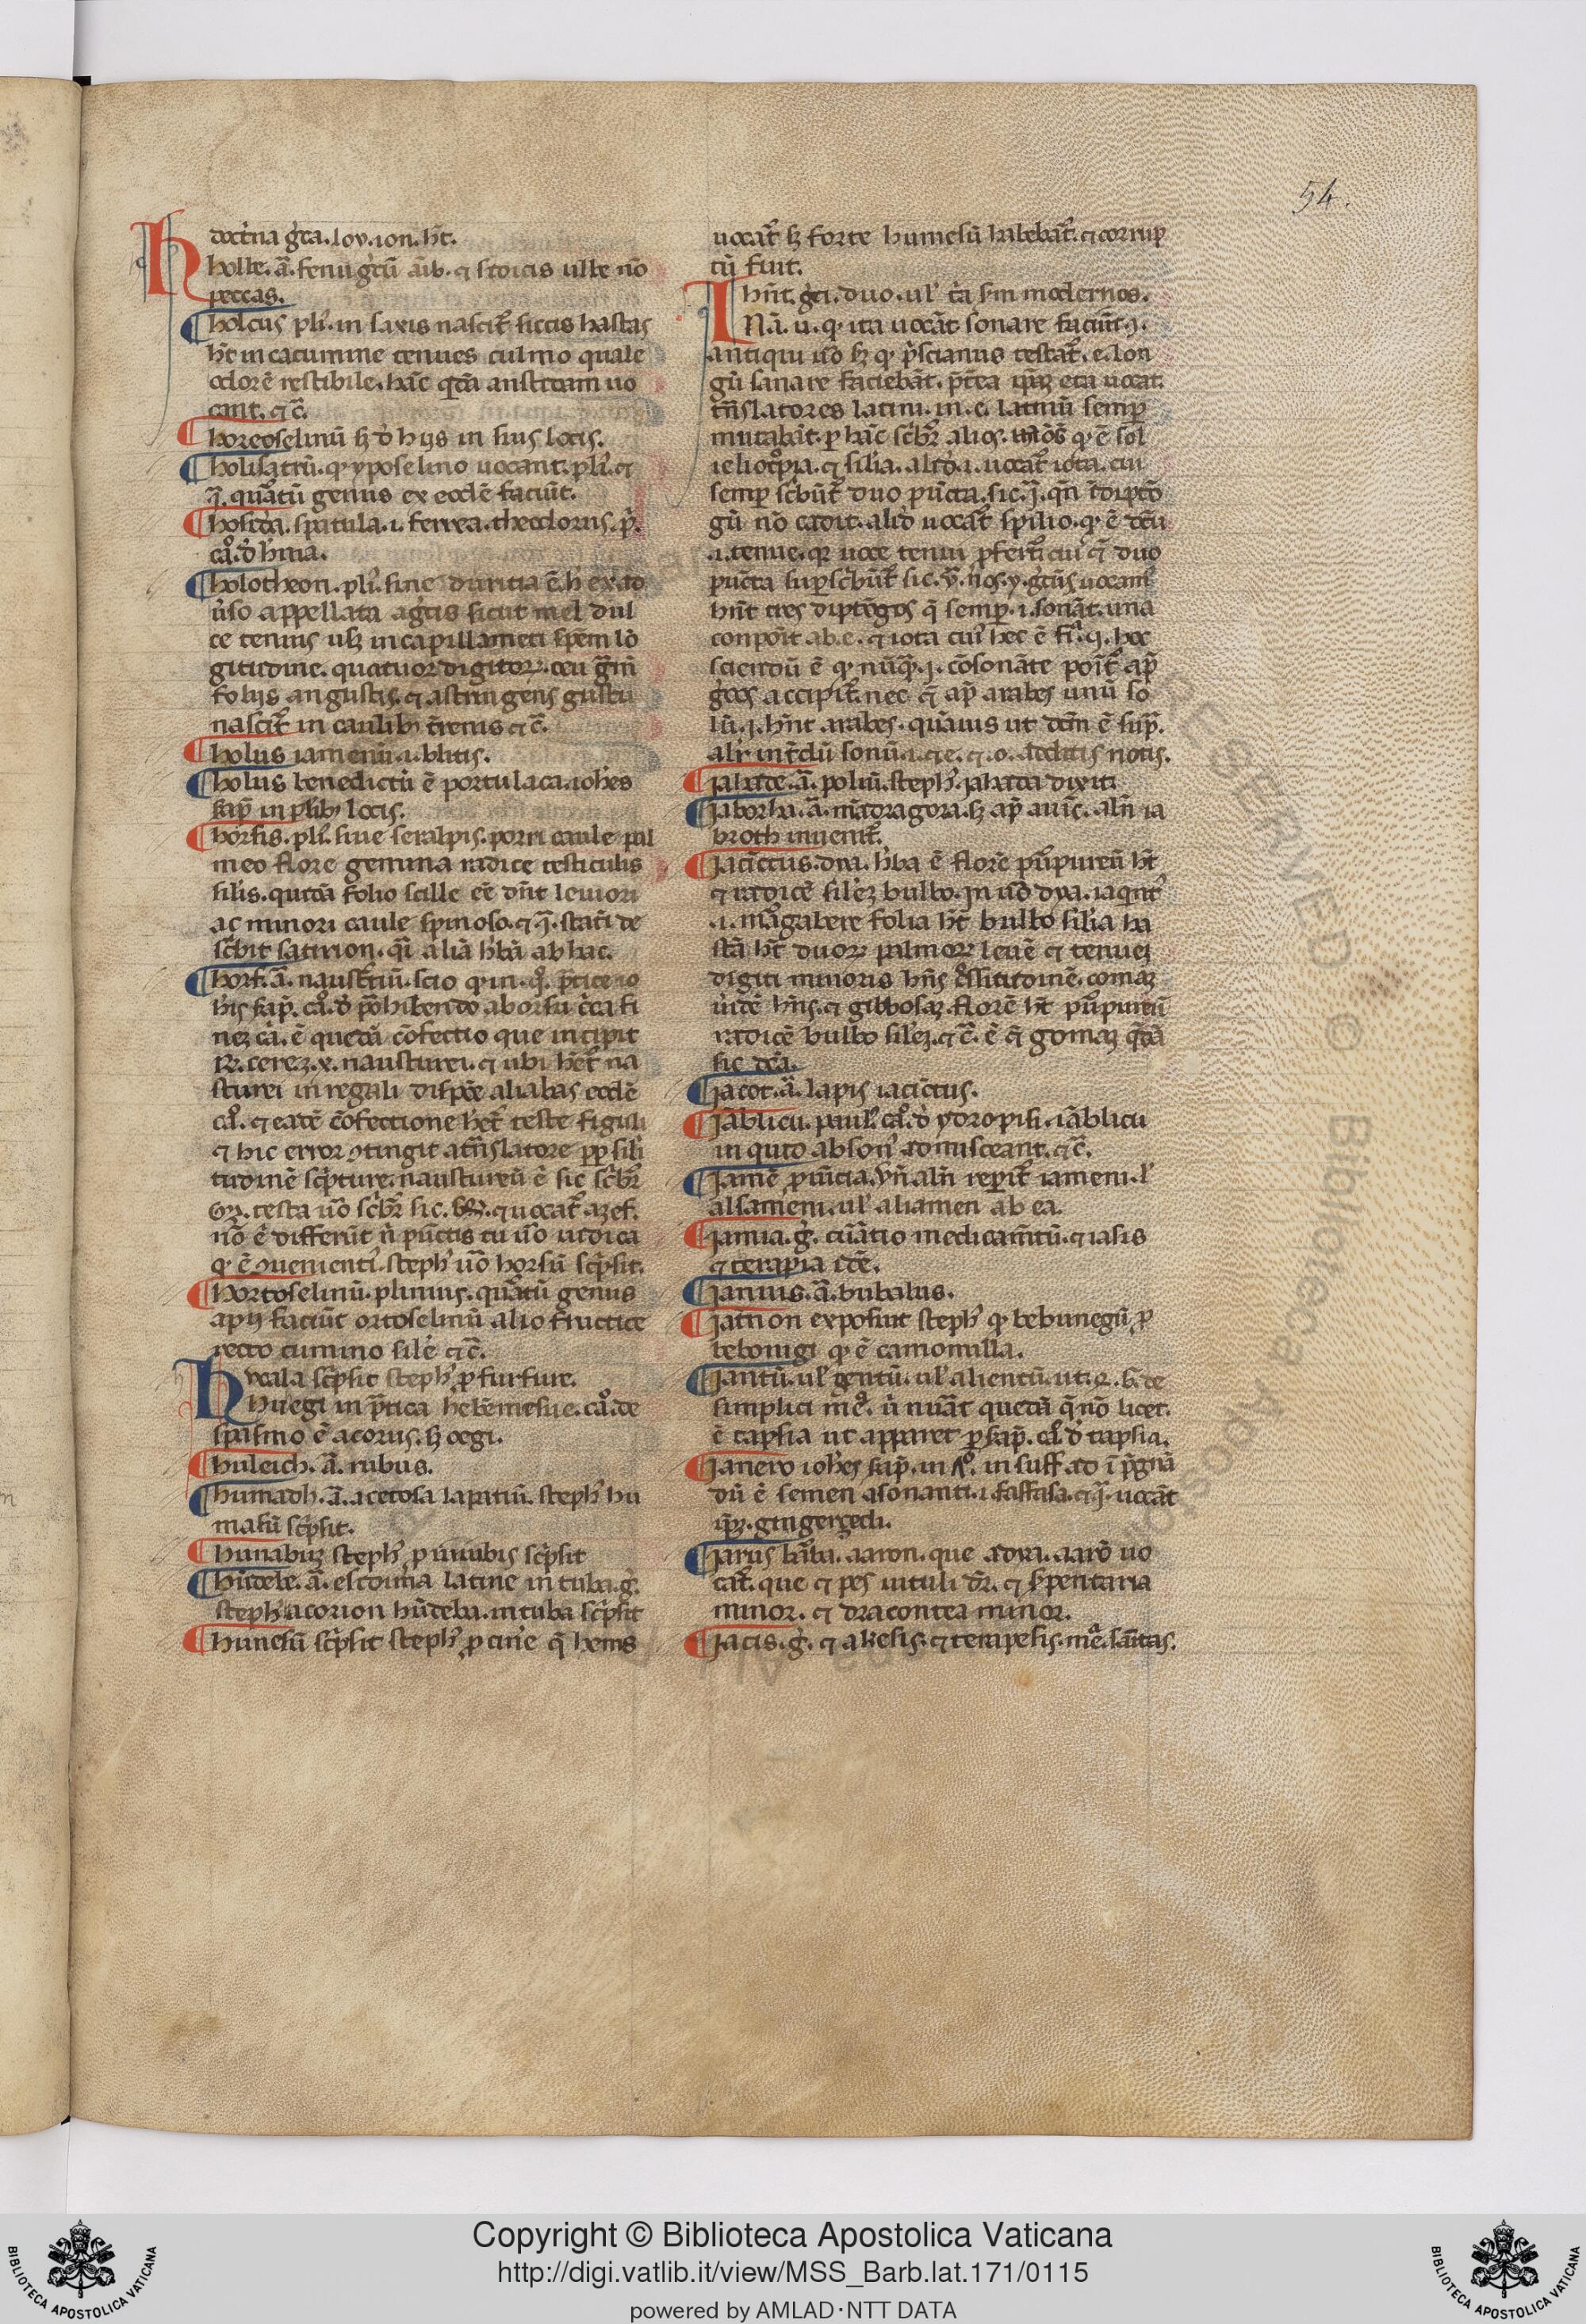 54.
doct'na g̃ca. lov. ion. h̃t.
holbe. ã. fenugc̃ũ ãib. ⁊ stoicis ulbe nõ
peccas.
holcus pli. in saxis nascit̃ siccis hastas
h̃t in cacumine tenues culmo quale
odorẽ restibile. hãc q̃dã anstidam uo
cant. ⁊ c̃.
horeoselinũ ꝫ d̓ hijs in suis locis.
holisatrũ. qͥ yposelino uocant. pli. ⁊
q̃. quãtũ genus ex eodẽ faciũt.
hosida. spatula. i. ferrea. theodorus. p̃.
cãº. d̓ h̓nia.
holotheon. pli. sine duritia ẽ. h̓ ex ad
ũso appellata ag̃cis sicut mel dul
ce tenuis usꝫ in capillamẽti spẽm lõ
gitudine. quatuor digitoꝝ. ceu g̃m̃
folijs angustis. ⁊ astringens gustu
nascit̃ in caulibꝫ t̃renis ⁊ c̃.
holus iamenũ. i. blitis.
holus benedictũ ẽ portulaca. ioh̓es
sap̃ in pl̃ibꝫ locis.
horsis. pli. siue serapis. porri caule pal
meo flore gemina radice testiculis
sil'is. qudã folio scille eẽ dñt leuiori
ac minori caule spinoso. ⁊ q̃. stati de
sc̓bit satirion. q̃i aliã h̓bã ab hac.
horf. ã. naust̃iũ. scio qͥ in. qͦ. p̃tice io
h̓is sap̃. cãº. d̓ p̃hibendo aborsu c̓ca fi
neꝫ cã. ẽ quedã cõfectio que incipit
℞. cereꝫ. x. nausturci. ⁊ ubi h̓et̃ na
sturci in regali disp̃õe aliabas eodẽ
cãº. ⁊ eadẽ cõfectione h̓et̃ teste figuli
⁊ hic error ꝯtingit a tñslatore pp̃ sili
tudinẽ sc̓pture. nausturcũ ẽ sic sc̓bꝛ̃
testa ũo sc̓bꝛ̃ sic. ⁊ uocat̃ azef.
nõ ẽ differũt ñ pũctis tu ũo iudica
qͥ ẽ ꝯuenienti. steph̓ ũo horsũ sc̓psit.
hortoselinũ. plinius. quãtũ genus
apij faciũt ortoselinũ alio fructice
recto cumino sil'e ⁊ c̃.
huala sc̓psit steph̓ p̃ furfure.
huegi in p̃tica heb̓emesue. cãº. de
spasmo ẽ acorus. ꝫ oegi.
huleich. ã. rubus.
humadh. ã. acetosa lapatiũ. steph̓ hu
masũ sc̓psit.
hunabuꝫ steph̓ p̃ uiuubis sc̓psit
hũdebe. ã. escoima latine intuba. g̃.
steph̓ acorion hũdeba. intuba sc̓psit
hunesũ sc̓psit steph̓ p̃ cin'e q̃ hems
uocat̃ ꝫ forte humesũ habebãt̃. ⁊ corrup
tũ fuit.
I hñt. g̃ci. duo. ul' t̃a s̃m modernos.
Nã. u. qͥ ita uocãt sonare faciũt ꝯ.
antiqui ũo ꝫ qͥ p̓scianus testat̃. e. lon
gũ sanare faciebãt. p̃t̃ea ip̃aꝫ eta uocat.
tñslatores latini. in. e. latinũ semp̃
mutabãt. p̃ hãc sc̓bꝛ̃ alios. qͥ ẽ sol
ieliot̃pia. ⁊ sil'ia. altd̓. i. uocat̃ iota. cui
semp̃ sc̓bũt̃ duo pũcta. sic. ï. qñ ĩ dipto
gũ nõ cadit. ali'd uocat̃ spilio. qͥ ẽ dc̃u
.i. tenue. qꝛ uoce tenui p̃fert̃ cui' ⁊̃ duo
pũcta sup̃sc̓bũt̃ sic. ÿ. nos. y. g̃cũ uocam'
hñt tres diptõgos q̃ semp̃. i. sonãt. una
conponit̃ ab. e. ⁊ iota cui' hec ẽ fiͣ. ei. hoc
sciendũ ẽ qͥ nũq̃. i. cõsonãte ponit̃ ap̃
g̃cos accipit̃. nec ⁊̃ ap̃ arabes unũ so
lũ. i. hñt arabes. quãuis ut dc̃m ẽ sup̃.
alr̃ int̃dũ sonũ. i. ⁊ e. ⁊. o. additis notis.
jabade. ã. poliũ. steph̓. jabarda dixit.
jaborha. ã. mãdragora. ꝫ ap̃ auic̃. alñ ia
broth inuenit̃.
Jacic̃tus. dya. h̓ba ẽ florẽ pũpureũ h̃t
⁊ radicẽ sil'eꝫ bulbo. in ũd̓ dya. iaqnt̓
.i. mãgabere folia h̃t bulbo sil'ia ha
stã h̃t duoꝝ palmoꝝ leuẽ ⁊ tenueꝫ
digiti minoris hñs g̃ssitudinẽ. comaꝫ
ũidẽ hñs. ⁊ gibbosaꝫ. florẽ h̃t pũpureũ
radicẽ bulbo sil'eꝫ. ⁊ c̃. ẽ ⁊̃ gomaꝫ q̃dã
sic dc̃a.
Jacot. ã. lapis iacic̃tus.
Jãblicu. paul'. cãº. d̓ ydropisi. iãblicu
in quid abson' admisceant. ⁊ c̃.
Jamẽ p̃uĩcia. uñ alñ rep̃it̃ iameni. l'
alsameni. ul' aliamen ab ea.
Jamia. g̃. cũatio medicam̃tũ. ⁊ iasis
⁊ terapia idẽ.
Janius. ã. bubalus.
Jatñon exposuit steph̓ qͥ bebunegũ. p̃
bebonigi qͥ ẽ camomilla.
Jantũ. ul' gentũ. ul' alientũ. ut. G. de
simplici me. ñ nuãt quedã q̃ nõ licet.
ẽ tapsia ut apparet p̃ sap̃. cãº. d̓ tapsia.
Janero ioh̓es sap̃. in Aº. in suff. ad ĩp̃gnã
dũ ẽ semen asonanti. i. saffasa. ⁊ q̃. uocãt
ip̃aꝫ. gingergedi.
Jarus barba. aaron. que adya. aarõ uo
cat̃. que ⁊ pes uituli dr̃. ⁊ s̓pentaria
minor. ⁊ dracontea minor.
Jacis. g̃. ⁊ akesis. ⁊ terapesis. mẽ. sanitas.
Copyright © Biblioteca Apostolica Vaticana
http://digi.vatlib.it/view/MSS_Barb.lat.171/0115
powered by AMLAD·NTT DATA
BIBLIOTECA APOSTOLICA VATICANA
BIBLIOTECA APOSTOLICA VATICANA